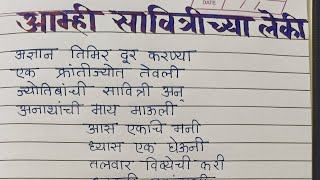 DATE
आम्ही सावित्रीच्या लेकी
अज्ञान तिमिर दूर करण्या
एक क्रांतीज्योत तेवली
ज्योतिबांची सावित्री अन्
अनाथांची माय माऊली
आस एकचि मनी
ध्यास एक घेऊनी
तलवार विद्येची करी